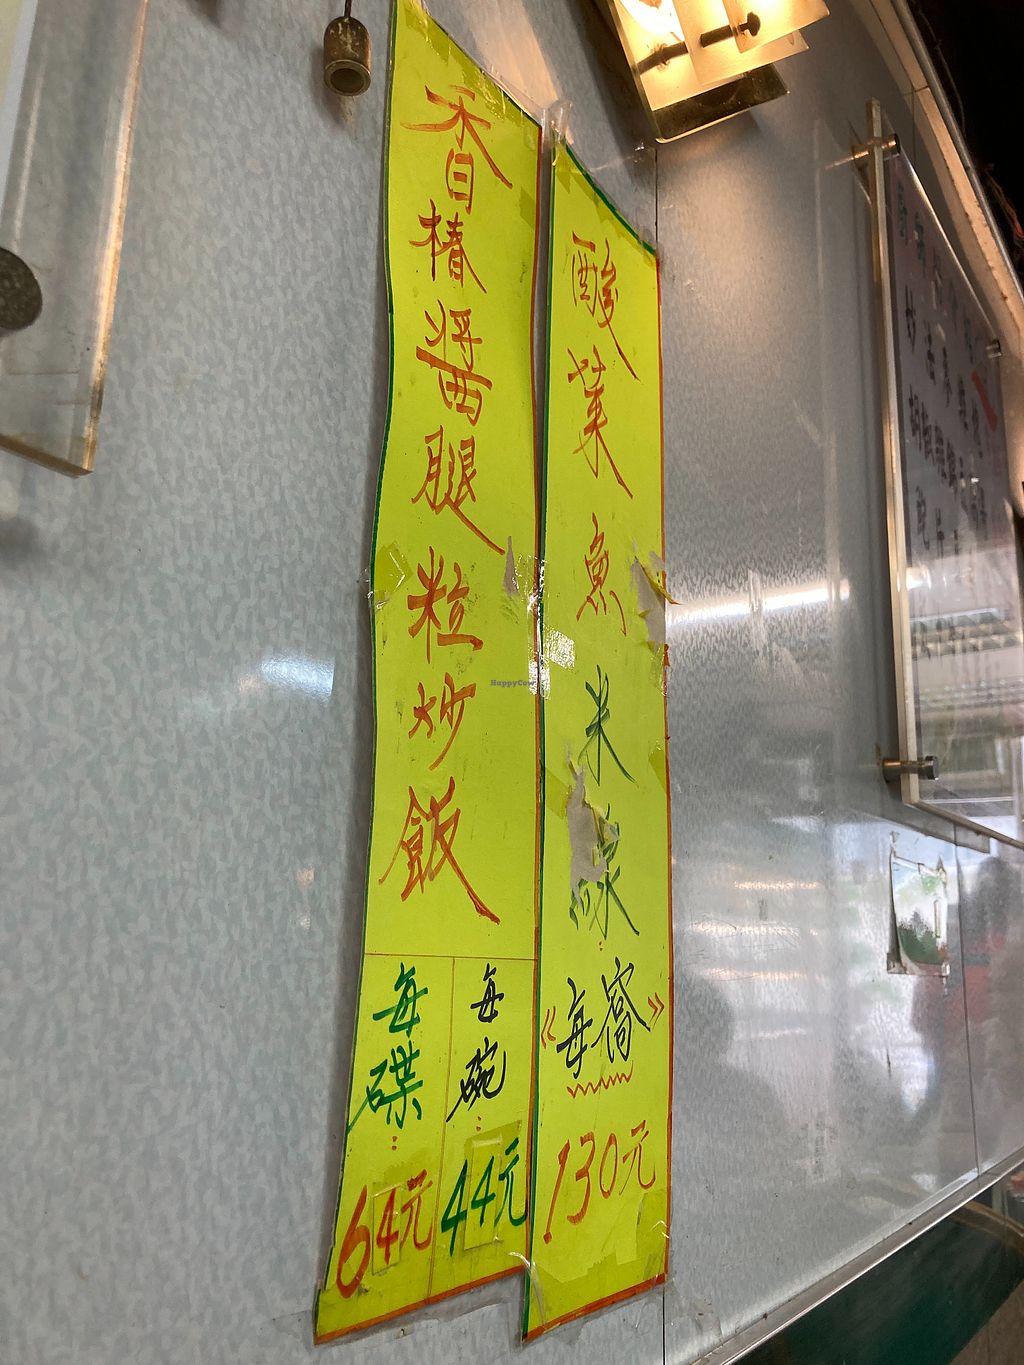 香椿醬腿粒炒飯
每碟:
64元
每碗:
44元
酸菜魚米線:
《每窩》
130元
HappyCow